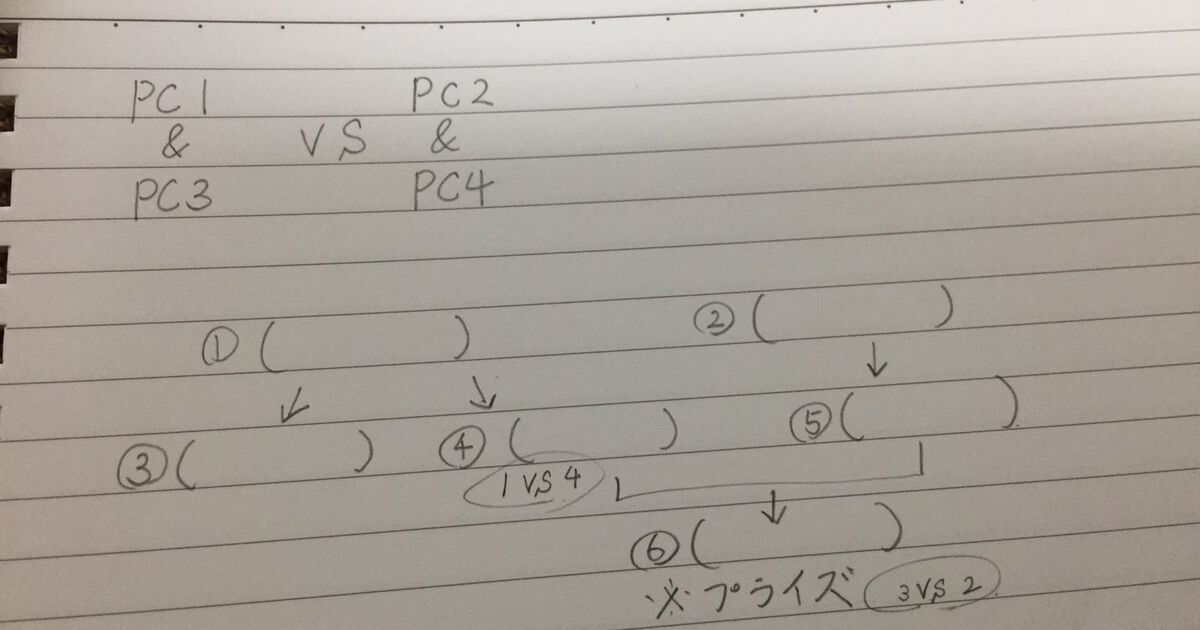 PC1 PC2
& VS &
PC3 PC4
①( ) ②( )
↓ ↓ ↓
③( ) ④( ) ⑤( )
1 VS 4
↓
⑥( )
※プライズ 3 VS 2